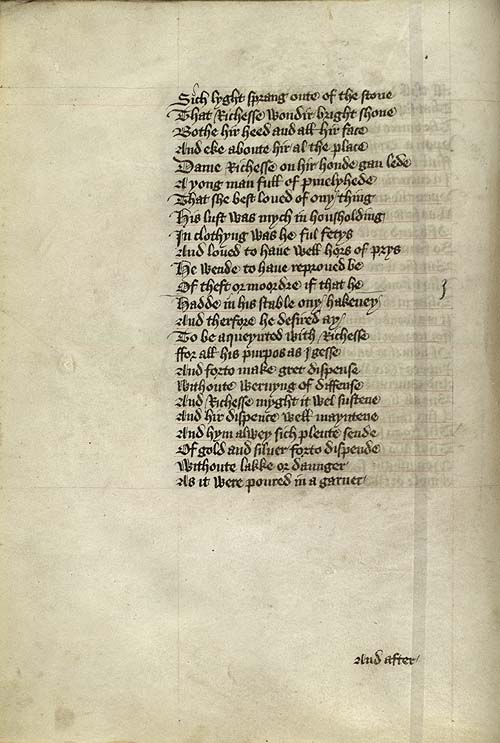 Sich lyght sprang oute of the stone
That Richesse wondir bright shone
Bothe hir heed and all hir face
And eke aboute hir al the place
Dame Richesse on hir honde gan lede
A yong man full of semelyhede
That she best loved of ony thing
His lust was mych in housholding
In clothyng was he ful fetys
And loved to have well hors of prys
He wende to have reproved be
Of theft or moordre if that he
Hadde in his stable ony hakeney
And therfore he desired ay
To be aqueynted with Richesse
ffor all his purpos as I gesse
And forto make gret dispense
Withoute wernyng or diffense
And Richesse myght it wel sustene
And hir dispence well mayntene
And hym alwey sich plente sende
Of gold and silver forto dispende
Withoute lakke or daunger
As it were poured in a garner
And after